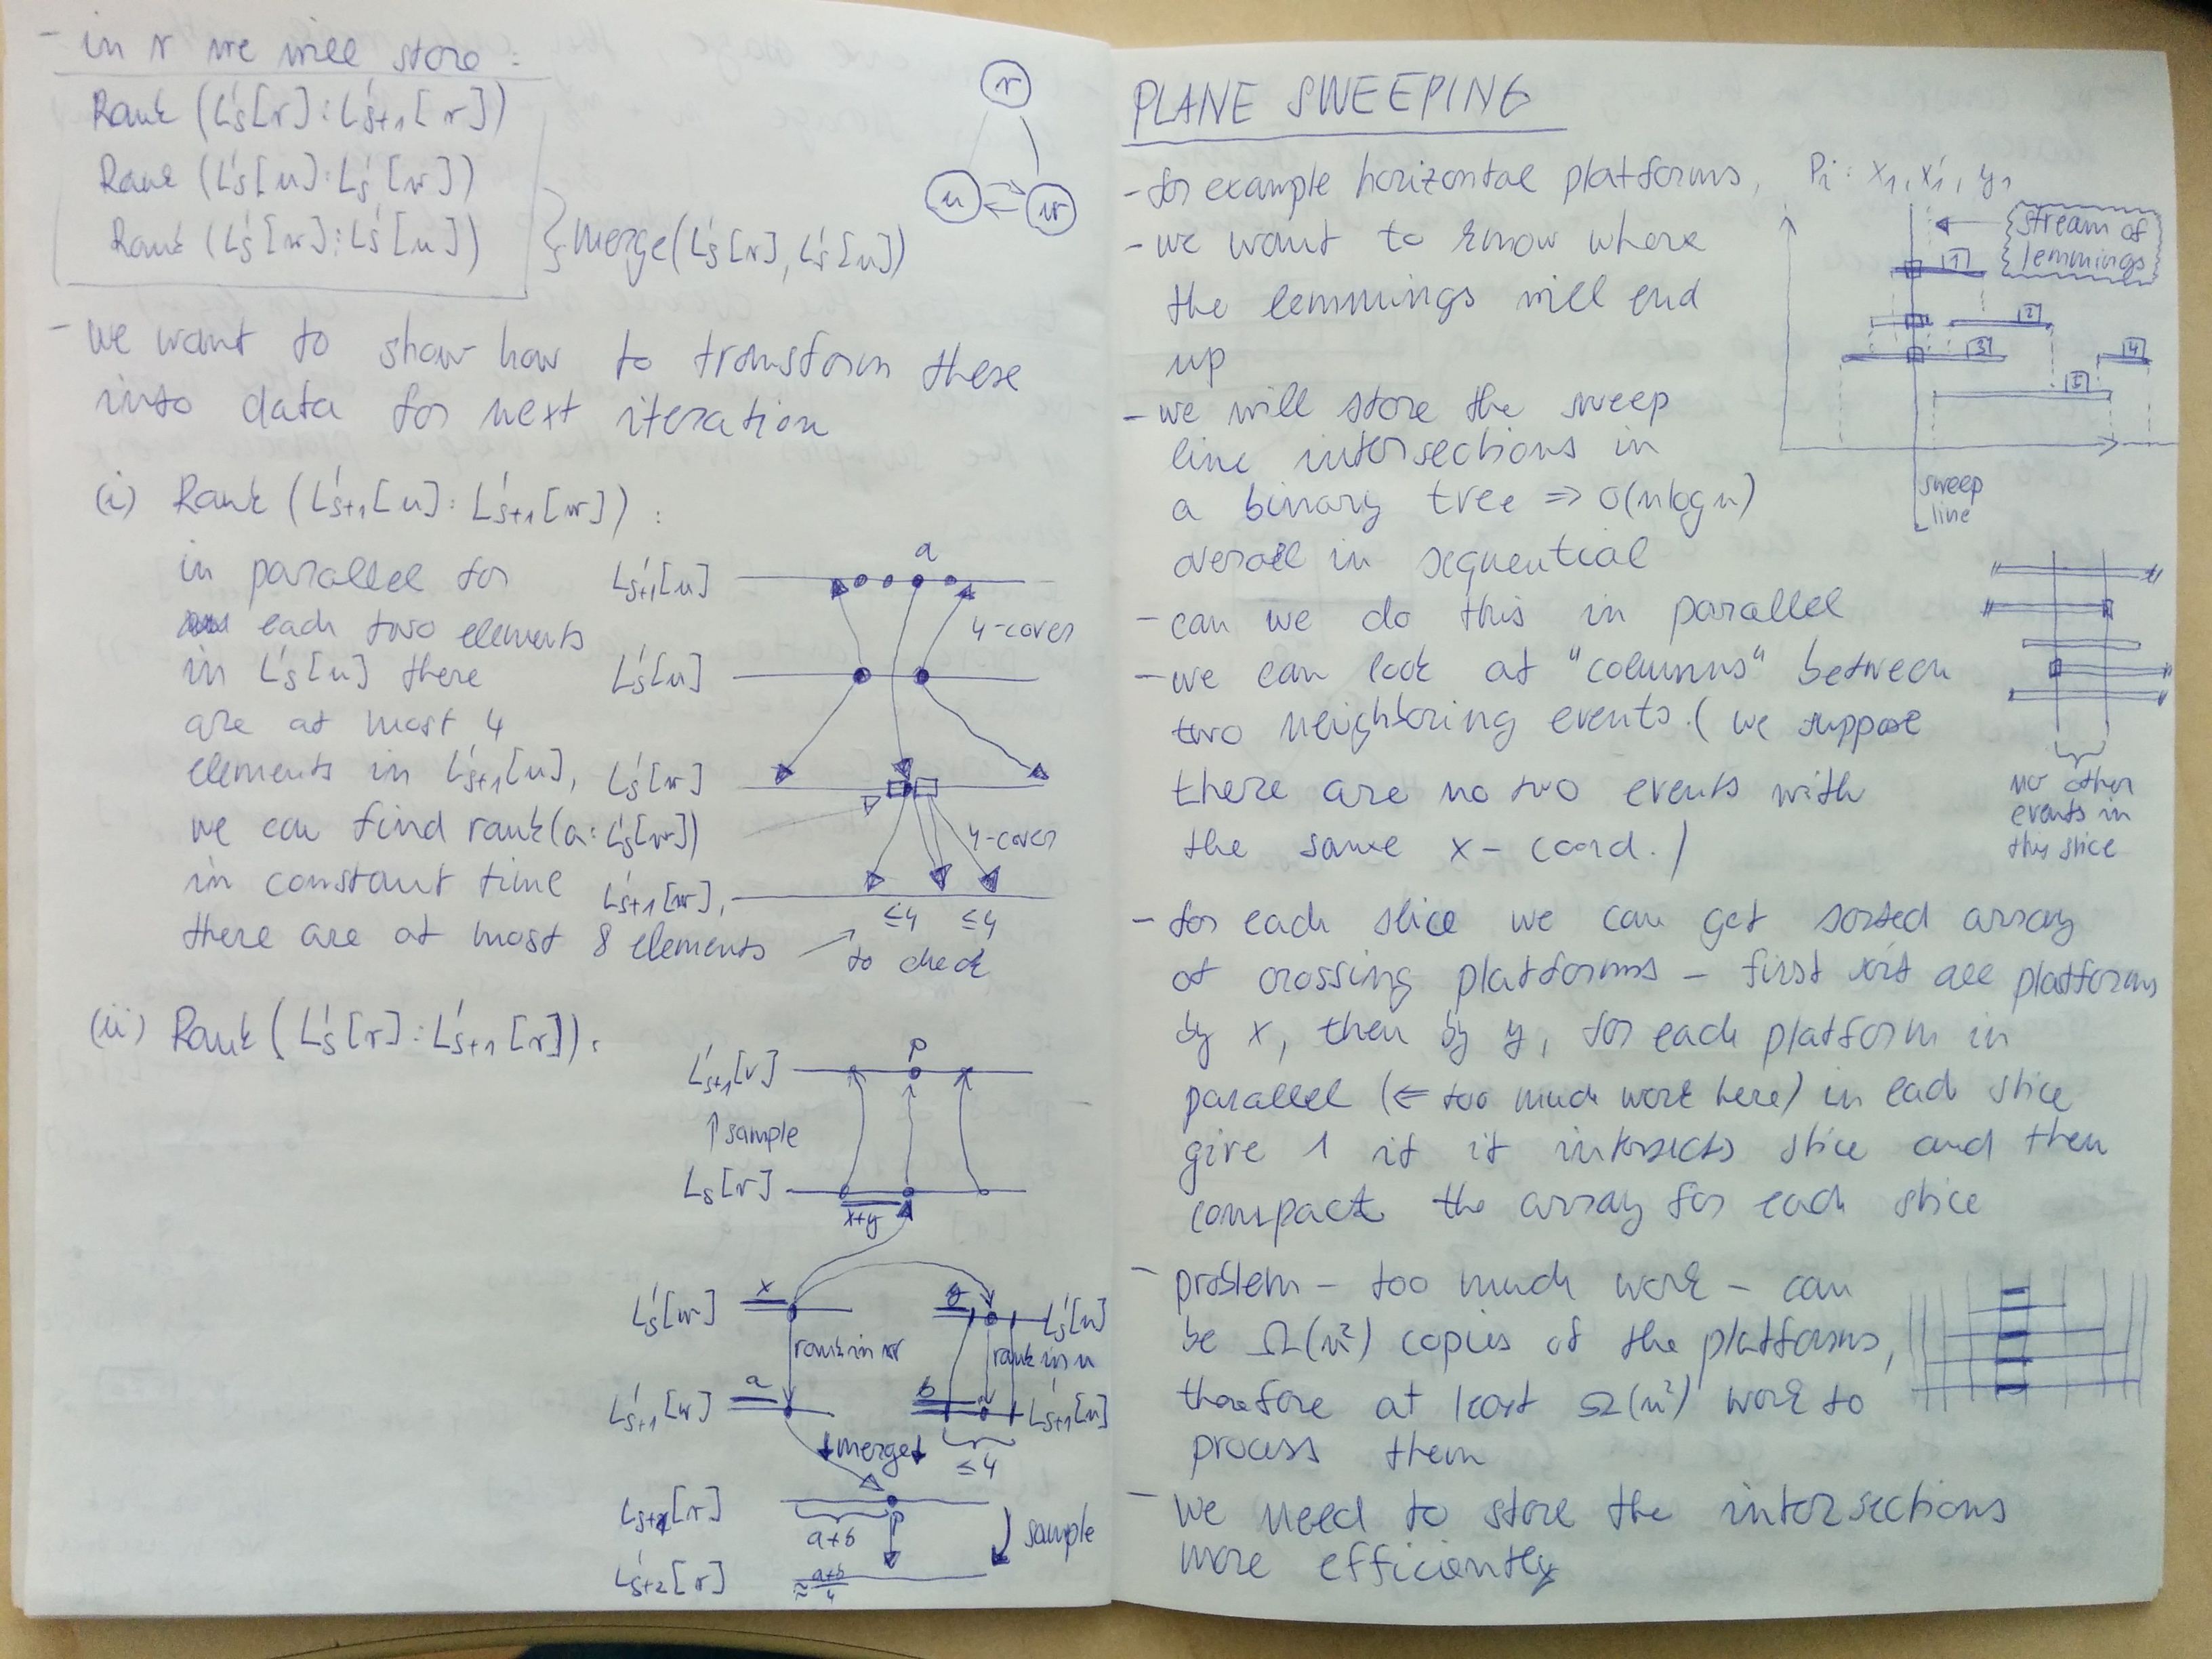 - in v we will store :
Rank (L's[v] : L's+1[v])
Rank (L's[u] : L's[w])
Rank (L's[w] : L's[u])
} merge(L's[w], L's[u])
v
u
w
- we want to show how to transform these
into data for next iteration
(i) Rank (L's+1[u] : L's+1[w]) :
in parallel for
each two elements
in L's[u] there
are at most 4
elements in L's+1[u],
we can find rank(a : L's[w])
in constant time
there are at most 8 elements
to check
a
L's+1[u]
4-cover
L's[u]
L's[w]
4-cover
L's+1[w],
≤4 ≤4
(ii) Rank (L's[v] : L's+1[v]) :
p
L's+1[v]
↑ sample
Ls[v]
x+y
L's[w] x y L's[u]
rank in w rank in u
L's+1[w] a b L's+1[u]
↓ merge ↓ ≤4
Ls+2[v] a+b p
sample
L's+2[v] ≈ a+b/4
PLANE SWEEPING
- for example horizontal platforms, Pi : x1, x'1, y1
- we want to know where
the lemmings will end
up
- we will store the sweep
line intersections in
a binary tree => O(n log n)
overall in sequential
stream of
lemmings
1
2
3
4
5
sweep
line
- can we do this in parallel
- we can look at "columns" between
two neighboring events. (we suppose
there are no two events with
the same x - coord.)
no other
events in
this slice
- for each slice we can get sorted array
of crossing platforms - first sort all platforms
by x, then by y, for each platform in
parallel (<= too much work here) in each slice
give 1 if it intersects slice and then
compact the array for each slice
- problem - too much work - can
be Ω(n²) copies of the platforms,
therefore at least Ω(n²) work to
process them
- we need to store the intersections
more efficiently